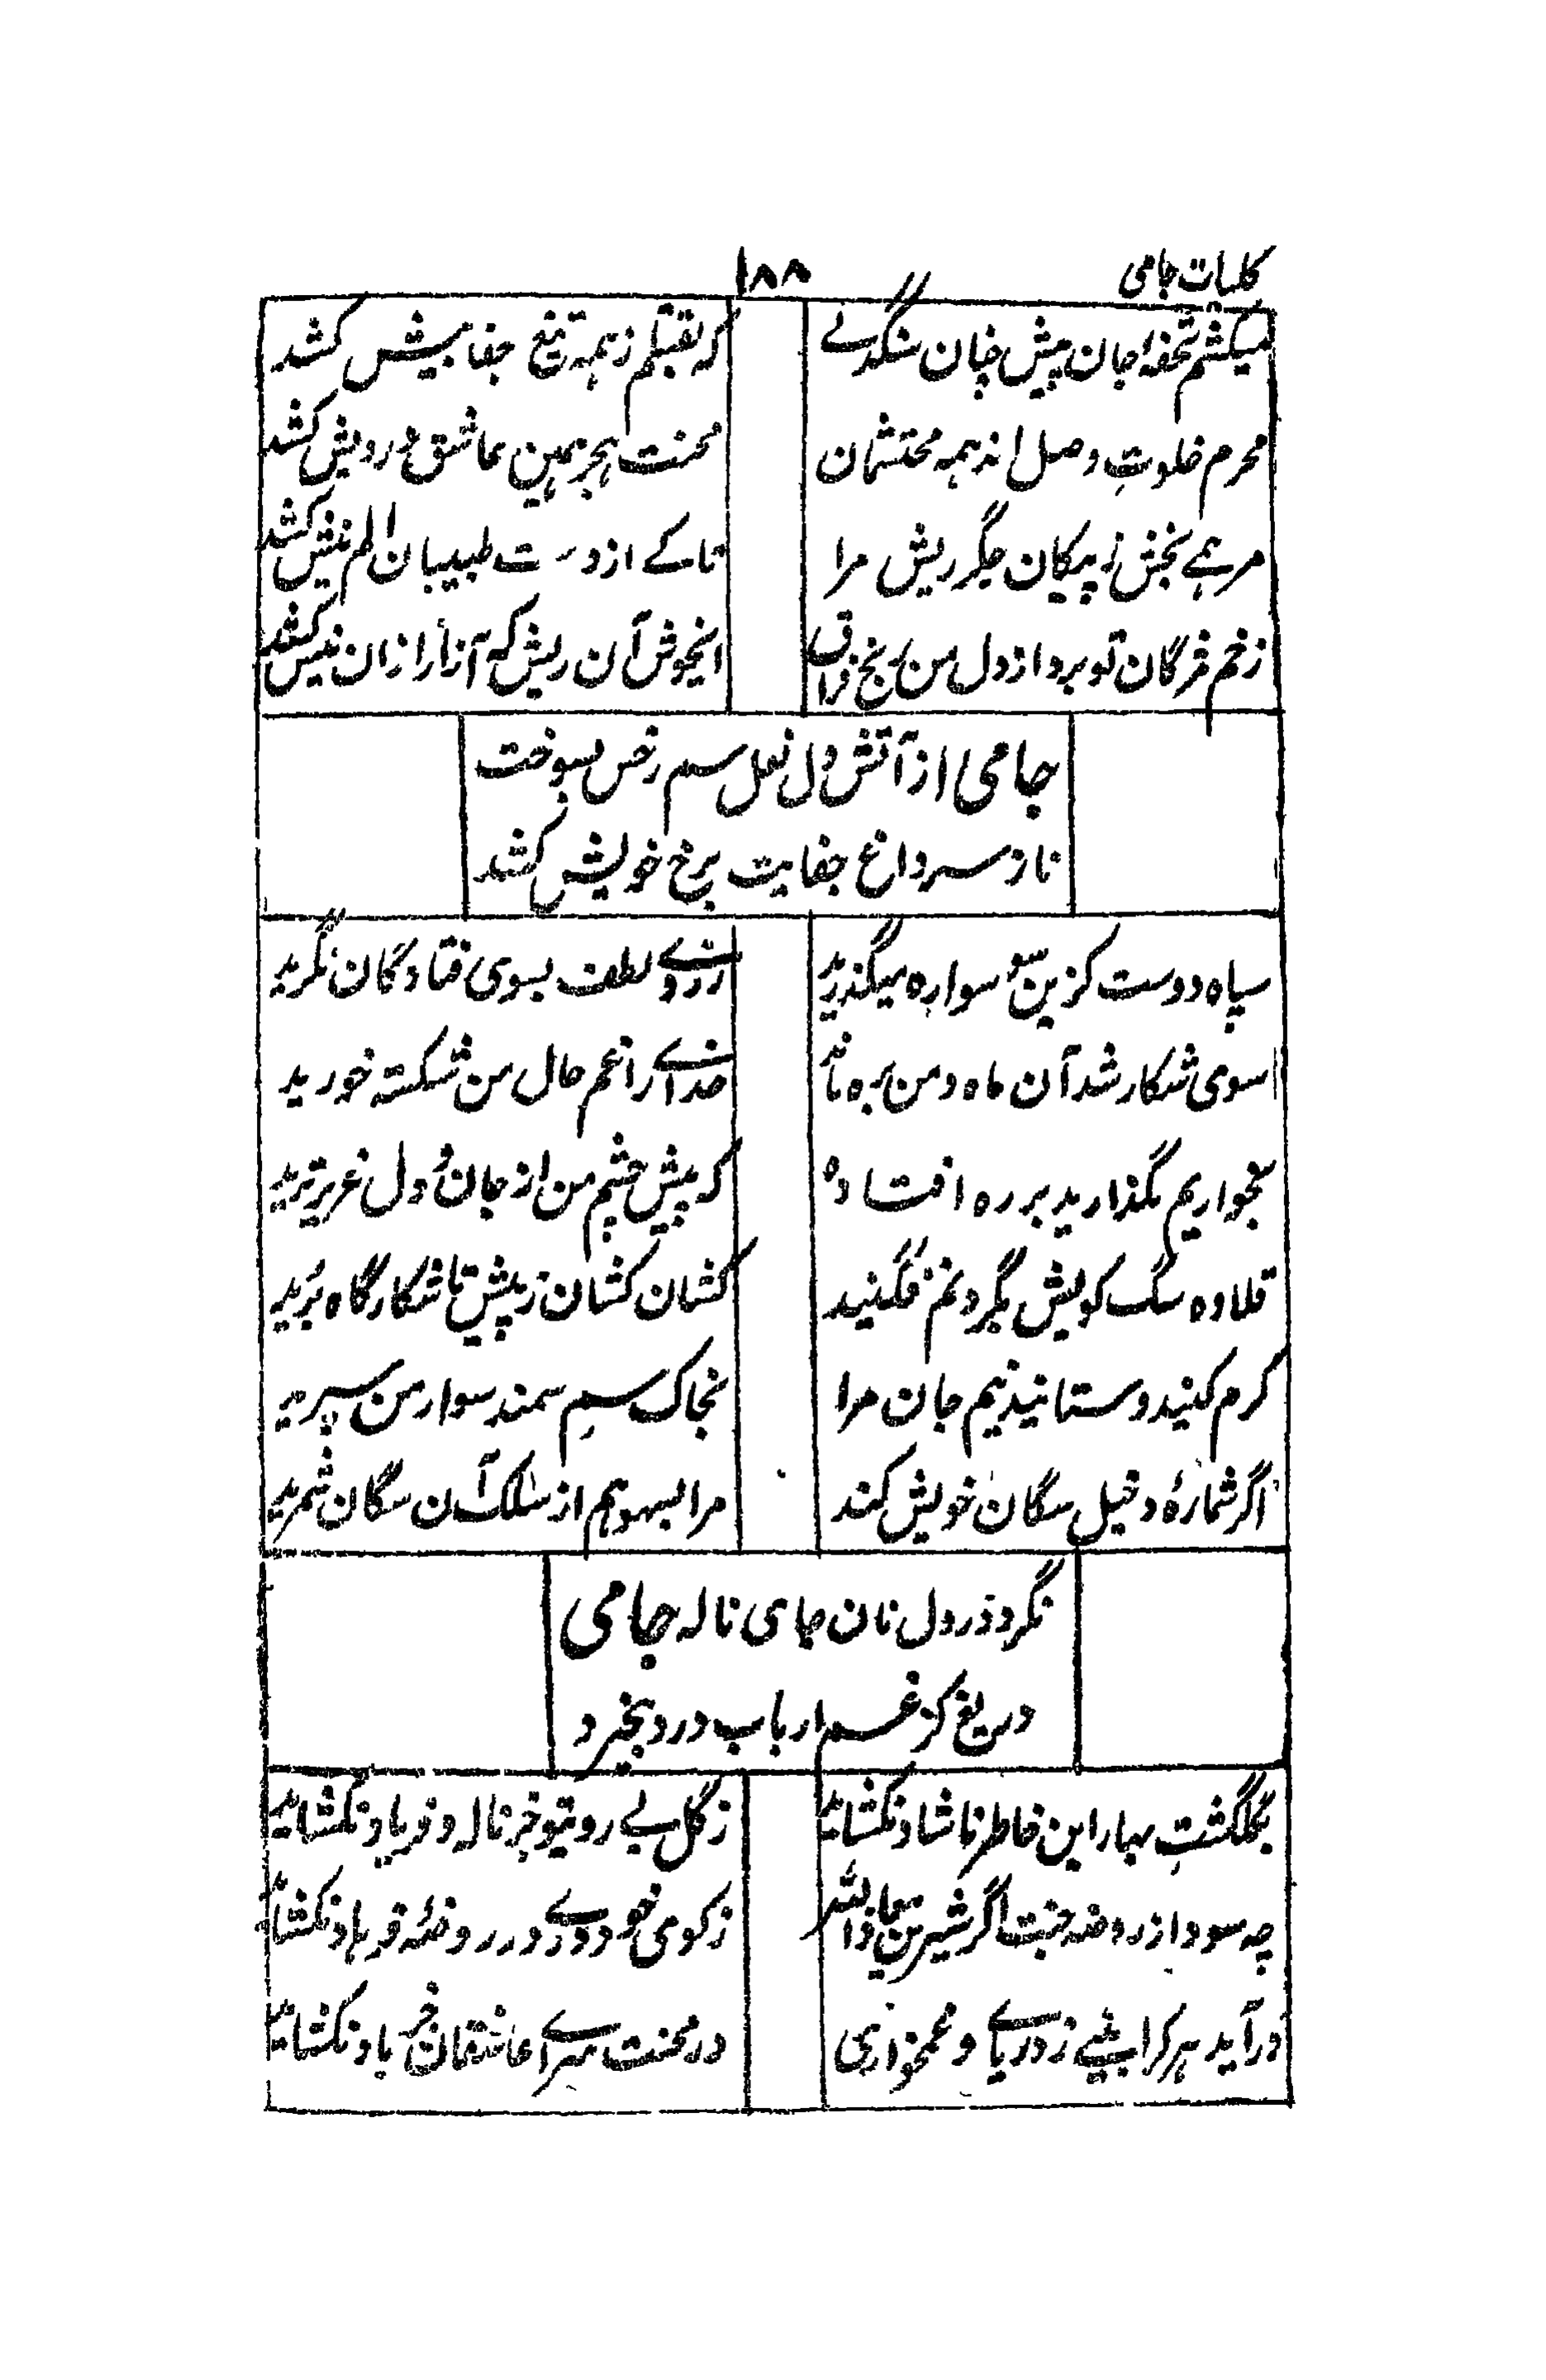 کلیات جامی
۱۸۸
میکشم تحفهٔ جان پیش چنان سنگدلے
که بقتلم ز همه تیغ جفا بیش کشد
محرم خلوتِ وصل اند همه محتشمان
محنت هجر همین عاشق درویش کشد
مرهمے بخش ز پیکان جگر ریش مرا
تا کے از دست طبیبان الم نیش کشد
زخم مژگان تو برد از دل من رنج فراق
ایخوش آن ریش که آزار ازان نیش کشد
جامی از آتش دل نعل سم رخش بسوخت
تا ز سر داغ جفایت برخ خویش کشد
سپاه دوست کزین سو سواره میگذرید
ز روے لطف بسوی فتادگان نگرید
سوی شکار شد آن ماه و من بره ماند
خدایرا غم حال من شکسته خورید
بخواریم مگذارید بر ره افتاده
که پیش چشم من از جان و دل عزیزترید
قلاوه سگ کویش بگردنم فگنید
کشان کشان ز پیش تا شکارگاه برید
کرم کنید و ستانید نیم جان مرا
بخاک سمِ سمند سوار من سپرید
اگر شمارهٔ خیل سگان خویش کند
مرا بسهو هم از سلک آن سگان شمرید
نکرد در دل تان جای ناله جامی
دریغ کز غم ارباب درد بیخبرید
بگلگشتِ بهار این خاطر ناشاد نکشاید
ز گل بے رویتو جز ناله و فریاد نکشاید
چه سود از روضه جنت اگر شیرین
ز کوی خود درے در روضهٔ فرهاد نکشاید
درآید هر کرا بینے ز در یارے و غمخواری
در محنت سراے عاشقان جز باد نکشاید